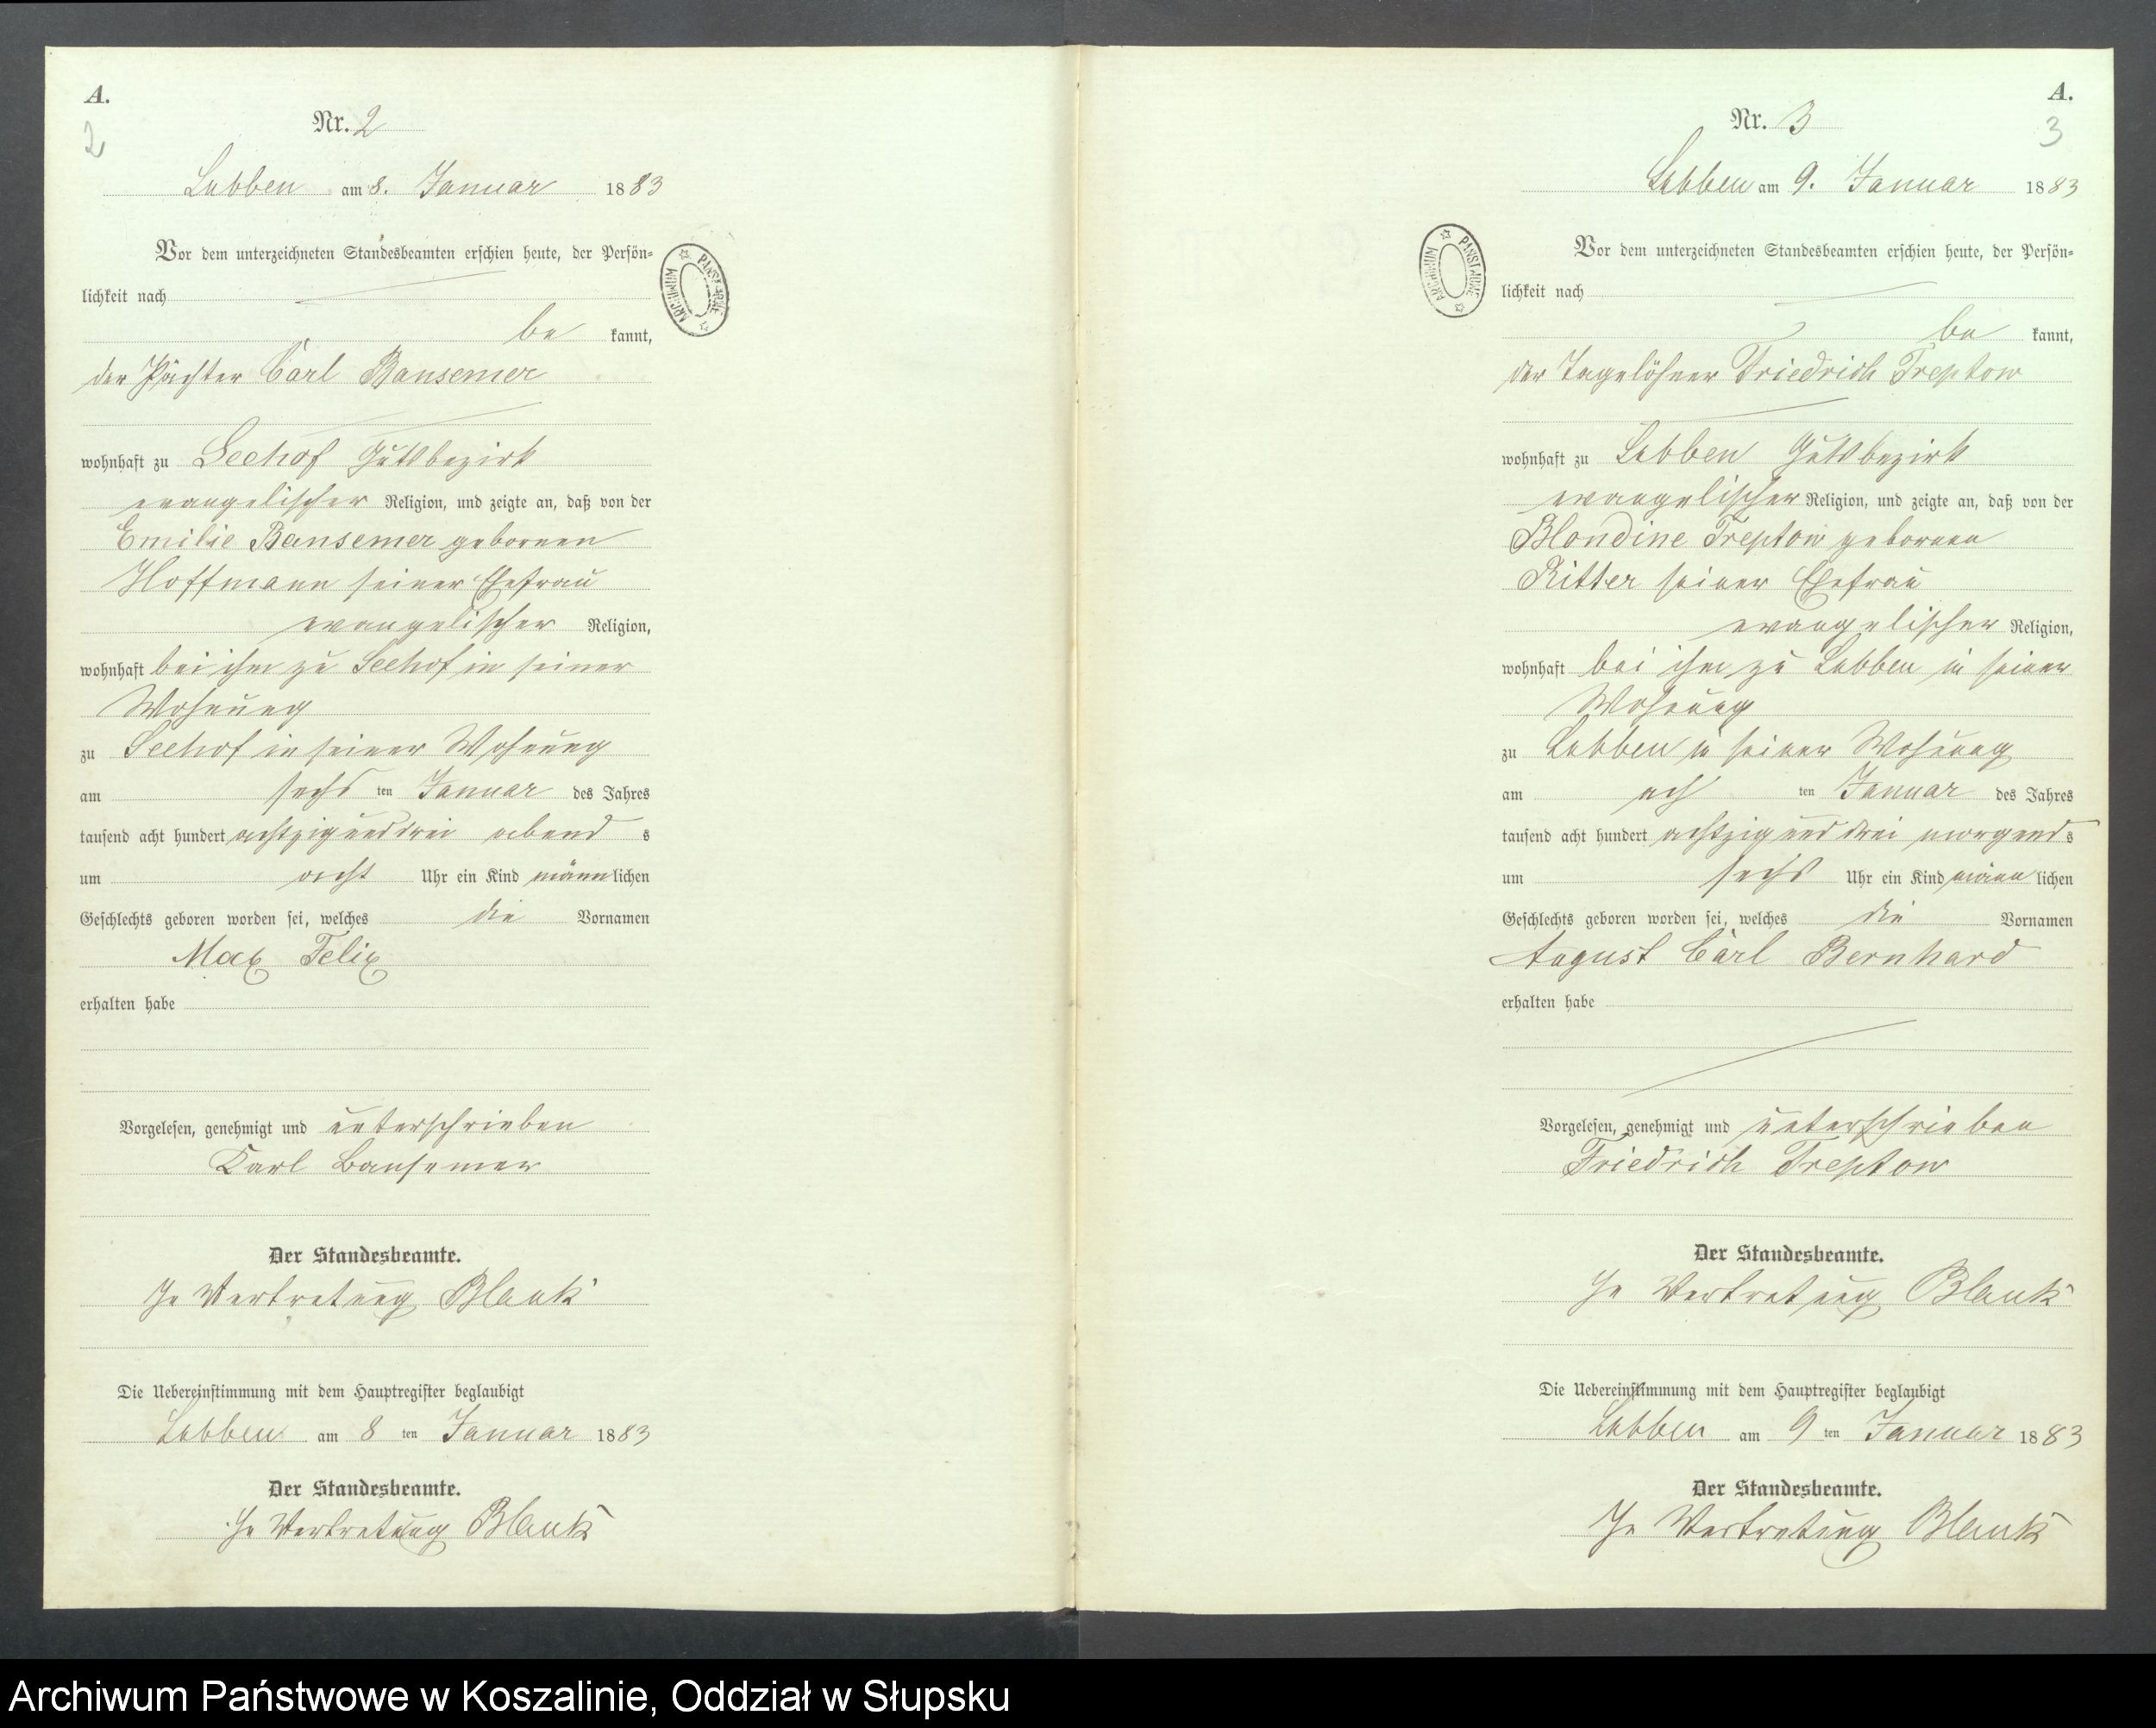 A.
2
Nr. 2
Lubben am 8. Januar 1883
Vor dem unterzeichneten Standesbeamten erschien heute, der Persön-
lichkeit nach
be kannt,
der Pächter Carl Bansemer
wohnhaft zu Seehof Gutsbezirk
evangelischer Religion, und zeigte an, daß von der
Emilie Bansemer geborenen
Hoffmann seiner Ehefrau
evangelischer Religion,
wohnhaft bei ihm zu Seehof in seiner
Wohnung
zu Seehof in seiner Wohnung
am sechs ten Januar des Jahres
tausend acht hundert achtzig und drei abend s
um acht Uhr ein Kind männlichen
Geschlechts geboren worden sei, welches die Vornamen
Max Felix
erhalten habe
Vorgelesen, genehmigt und unterschrieben
Karl Bansemer
Der Standesbeamte.
In Vertretung Blank
Die Uebereinstimmung mit dem Hauptregister beglaubigt
Lubben am 8 ten Januar 1883
Der Standesbeamte.
In Vertretung Blank
ARCHIWUM PAŃSTWOWE
A.
3
Nr. 3
Lubben am 9. Januar 1883
Vor dem unterzeichneten Standesbeamten erschien heute, der Persön-
lichkeit nach
be kannt,
der Tagelöhner Friedrich Treptow
wohnhaft zu Lubben Gutsbezirk
evangelischer Religion, und zeigte an, daß von der
Blondine Treptow geborenen
Ritter seiner Ehefrau
evangelischer Religion,
wohnhaft bei ihm zu Lubben in seiner
Wohnung
zu Lubben in seiner Wohnung
am ach ten Januar des Jahres
tausend acht hundert achtzig und drei morgend s
um sechs Uhr ein Kind männ lichen
Geschlechts geboren worden sei, welches die Vornamen
August Carl Bernhard
erhalten habe
Vorgelesen, genehmigt und unterschrieben
Friedrich Treptow
Der Standesbeamte.
In Vertretung Blank
Die Uebereinstimmung mit dem Hauptregister beglaubigt
Lubben am 9 ten Januar 1883
Der Standesbeamte.
In Vertretung Blank
ARCHIWUM PAŃSTWOWE
Archiwum Państwowe w Koszalinie, Oddział w Słupsku